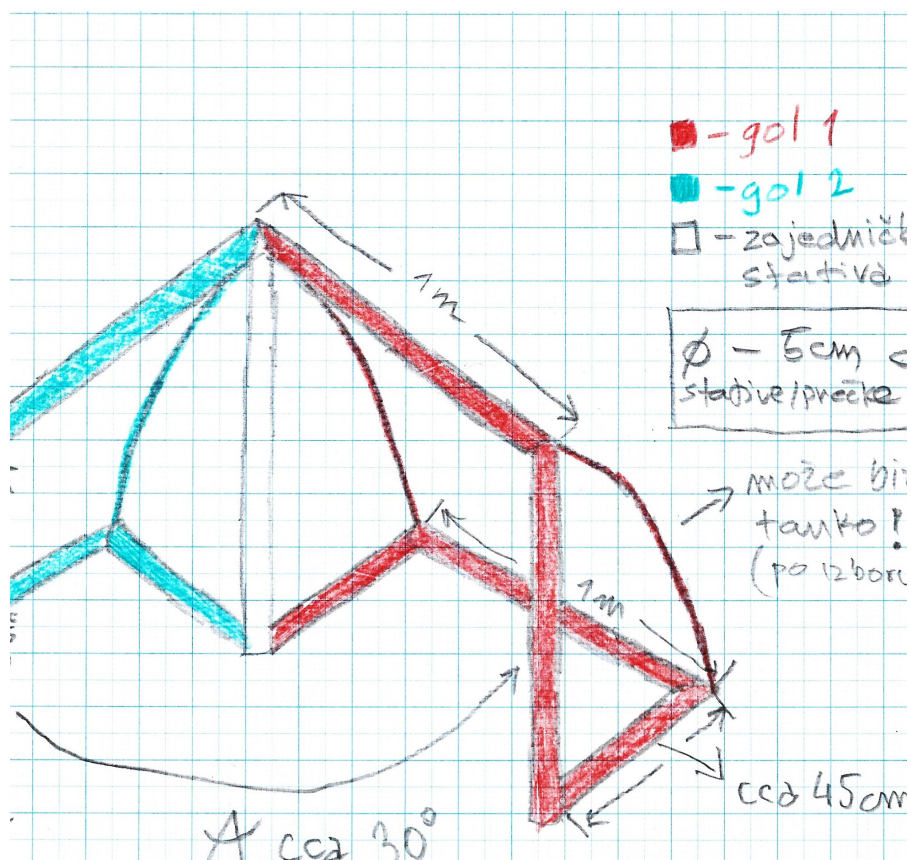 - gol 1
- gol 2
- zajedničk
stativa
Ø - 5cm
stative/prečke
1m
može bi
tanko!
(po izboru
1m
cca 45cm
cca 30°